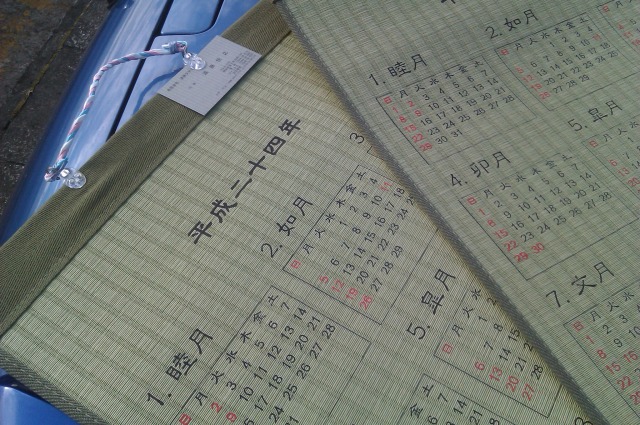 平成二十四年
1. 睦月
日 月 火 水 木 金 土
2 3 4 5 6 7
9 10 11 12 13 14
17 18 19 20 21
25 26 27 28
2. 如月
日 月 火 水 木 金 土
1 2 3 4
5 6 7 8 9 10 11
12 13 14 15 16 17 18
19 20 21 22 23 24 25
26 27 28 29
3.
5. 皐月
日 月 火 水 木
1 2
6 7 8
13 14 15
20 21
27 28
金 土
1. 睦月
日 月 火 水 木 金 土
1 2 3 4 5 6 7
8 9 10 11 12 13 14
15 16 17 18 19 20 21
22 23 24 25 26 27 28
29 30 31
2. 如月
日 月 火 水 木 金
1 2 3
5 6 7 8 9 10
12 13 14 15 16 17
19 20 21 22 23 24
26 27 28 29
4. 卯月
日 月 火 水 木 金 土
1 2 3 4 5 6 7
8 9 10 11 12 13 14
15 16 17 18 19 20 21
22 23 24 25 26 27 28
29 30
5. 皐月
日
6
13
20
27
7. 文月
日 月 火
1 2 3
8 9 10
15 16 17
22 23
29